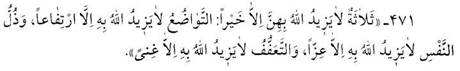 ٤٧١ـ «ثَلاَثَةٌ لاَيَزِيدُ اللهُ بِهِنَّ اِلاَّ خَيْراً: التَّوَاضُعُ لاَيَزِيدُ اللهُ بِهِ اِلَّا ارْتِفَاعاً، وَذُلُّ
النَّفْسِ لاَيَزِيدُ اللهُ بِهِ اِلاَّ عِزّاً، وَالتَّعَفُّفُ لاَيَزِيدُ اللهُ بِهِ اِلاَّ غِنىً».